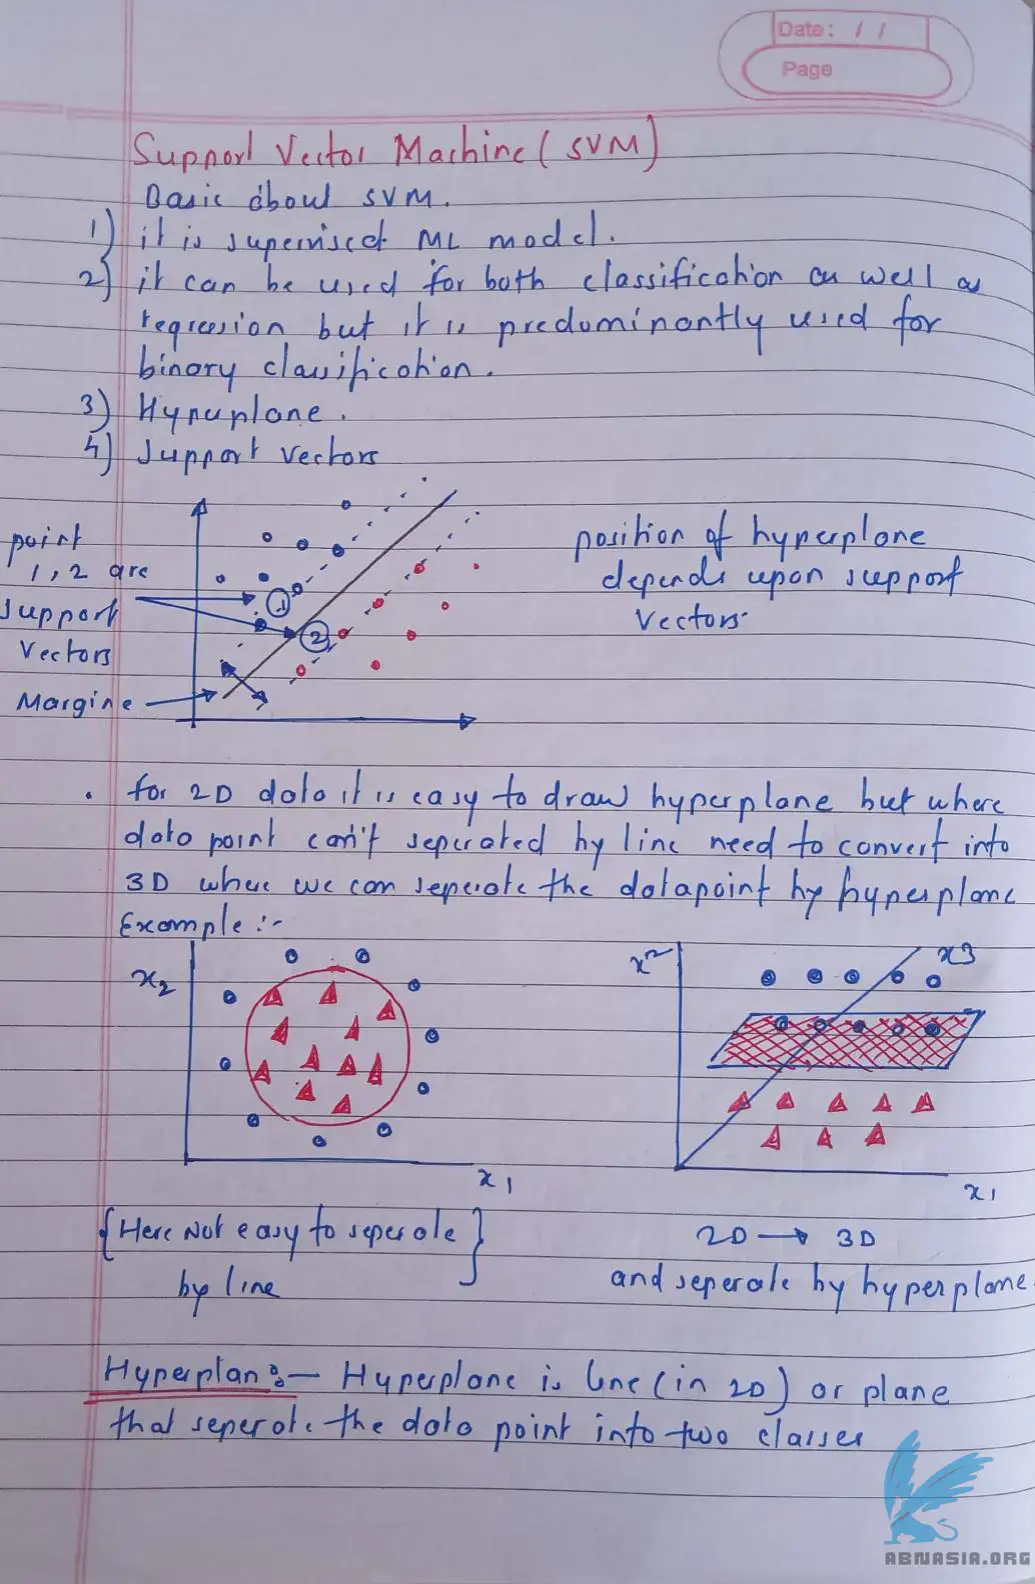 Date: / /
Page
Support Vector Machine (SVM)
Basic about SVM.
1) it is supervised ML model.
2) it can be used for both classification as well as
regression but it is predominantly used for
binary classification.
3) Hyperplane.
4) Support vectors
point
1, 2 are
support
vectors
Margine
1
2
position of hyperplane
depends upon support
vectors.
. for 2D data it is easy to draw hyperplane but where
data point can't seperated by line need to convert into
3D where we can seperate the datapoint by hyperplane
Example :-
x2
x1
x2
x3
x1
{Here Not easy to seperate}
by line
2D → 3D
and seperate by hyperplane.
Hyperplan :- Hyperplane is line (in 2D) or plane
that seperate the data point into two classes
ABNASIA.ORG